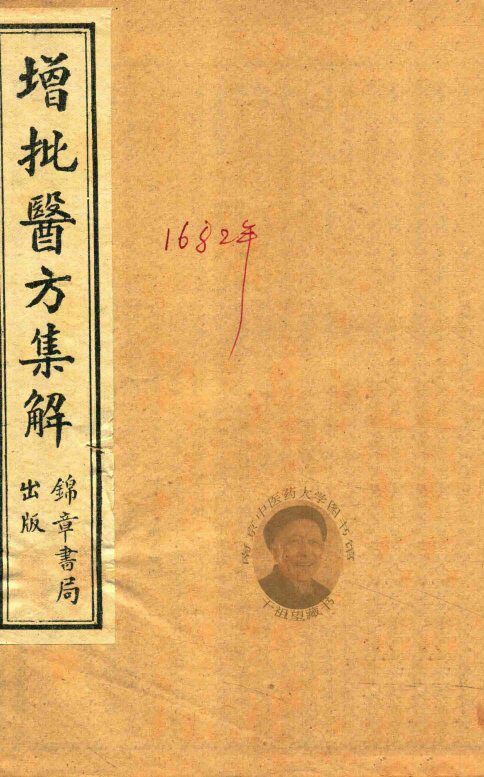 增批醫方集解
錦章書局
出版
1682年
南京中医药大学图书馆
干祖望藏书